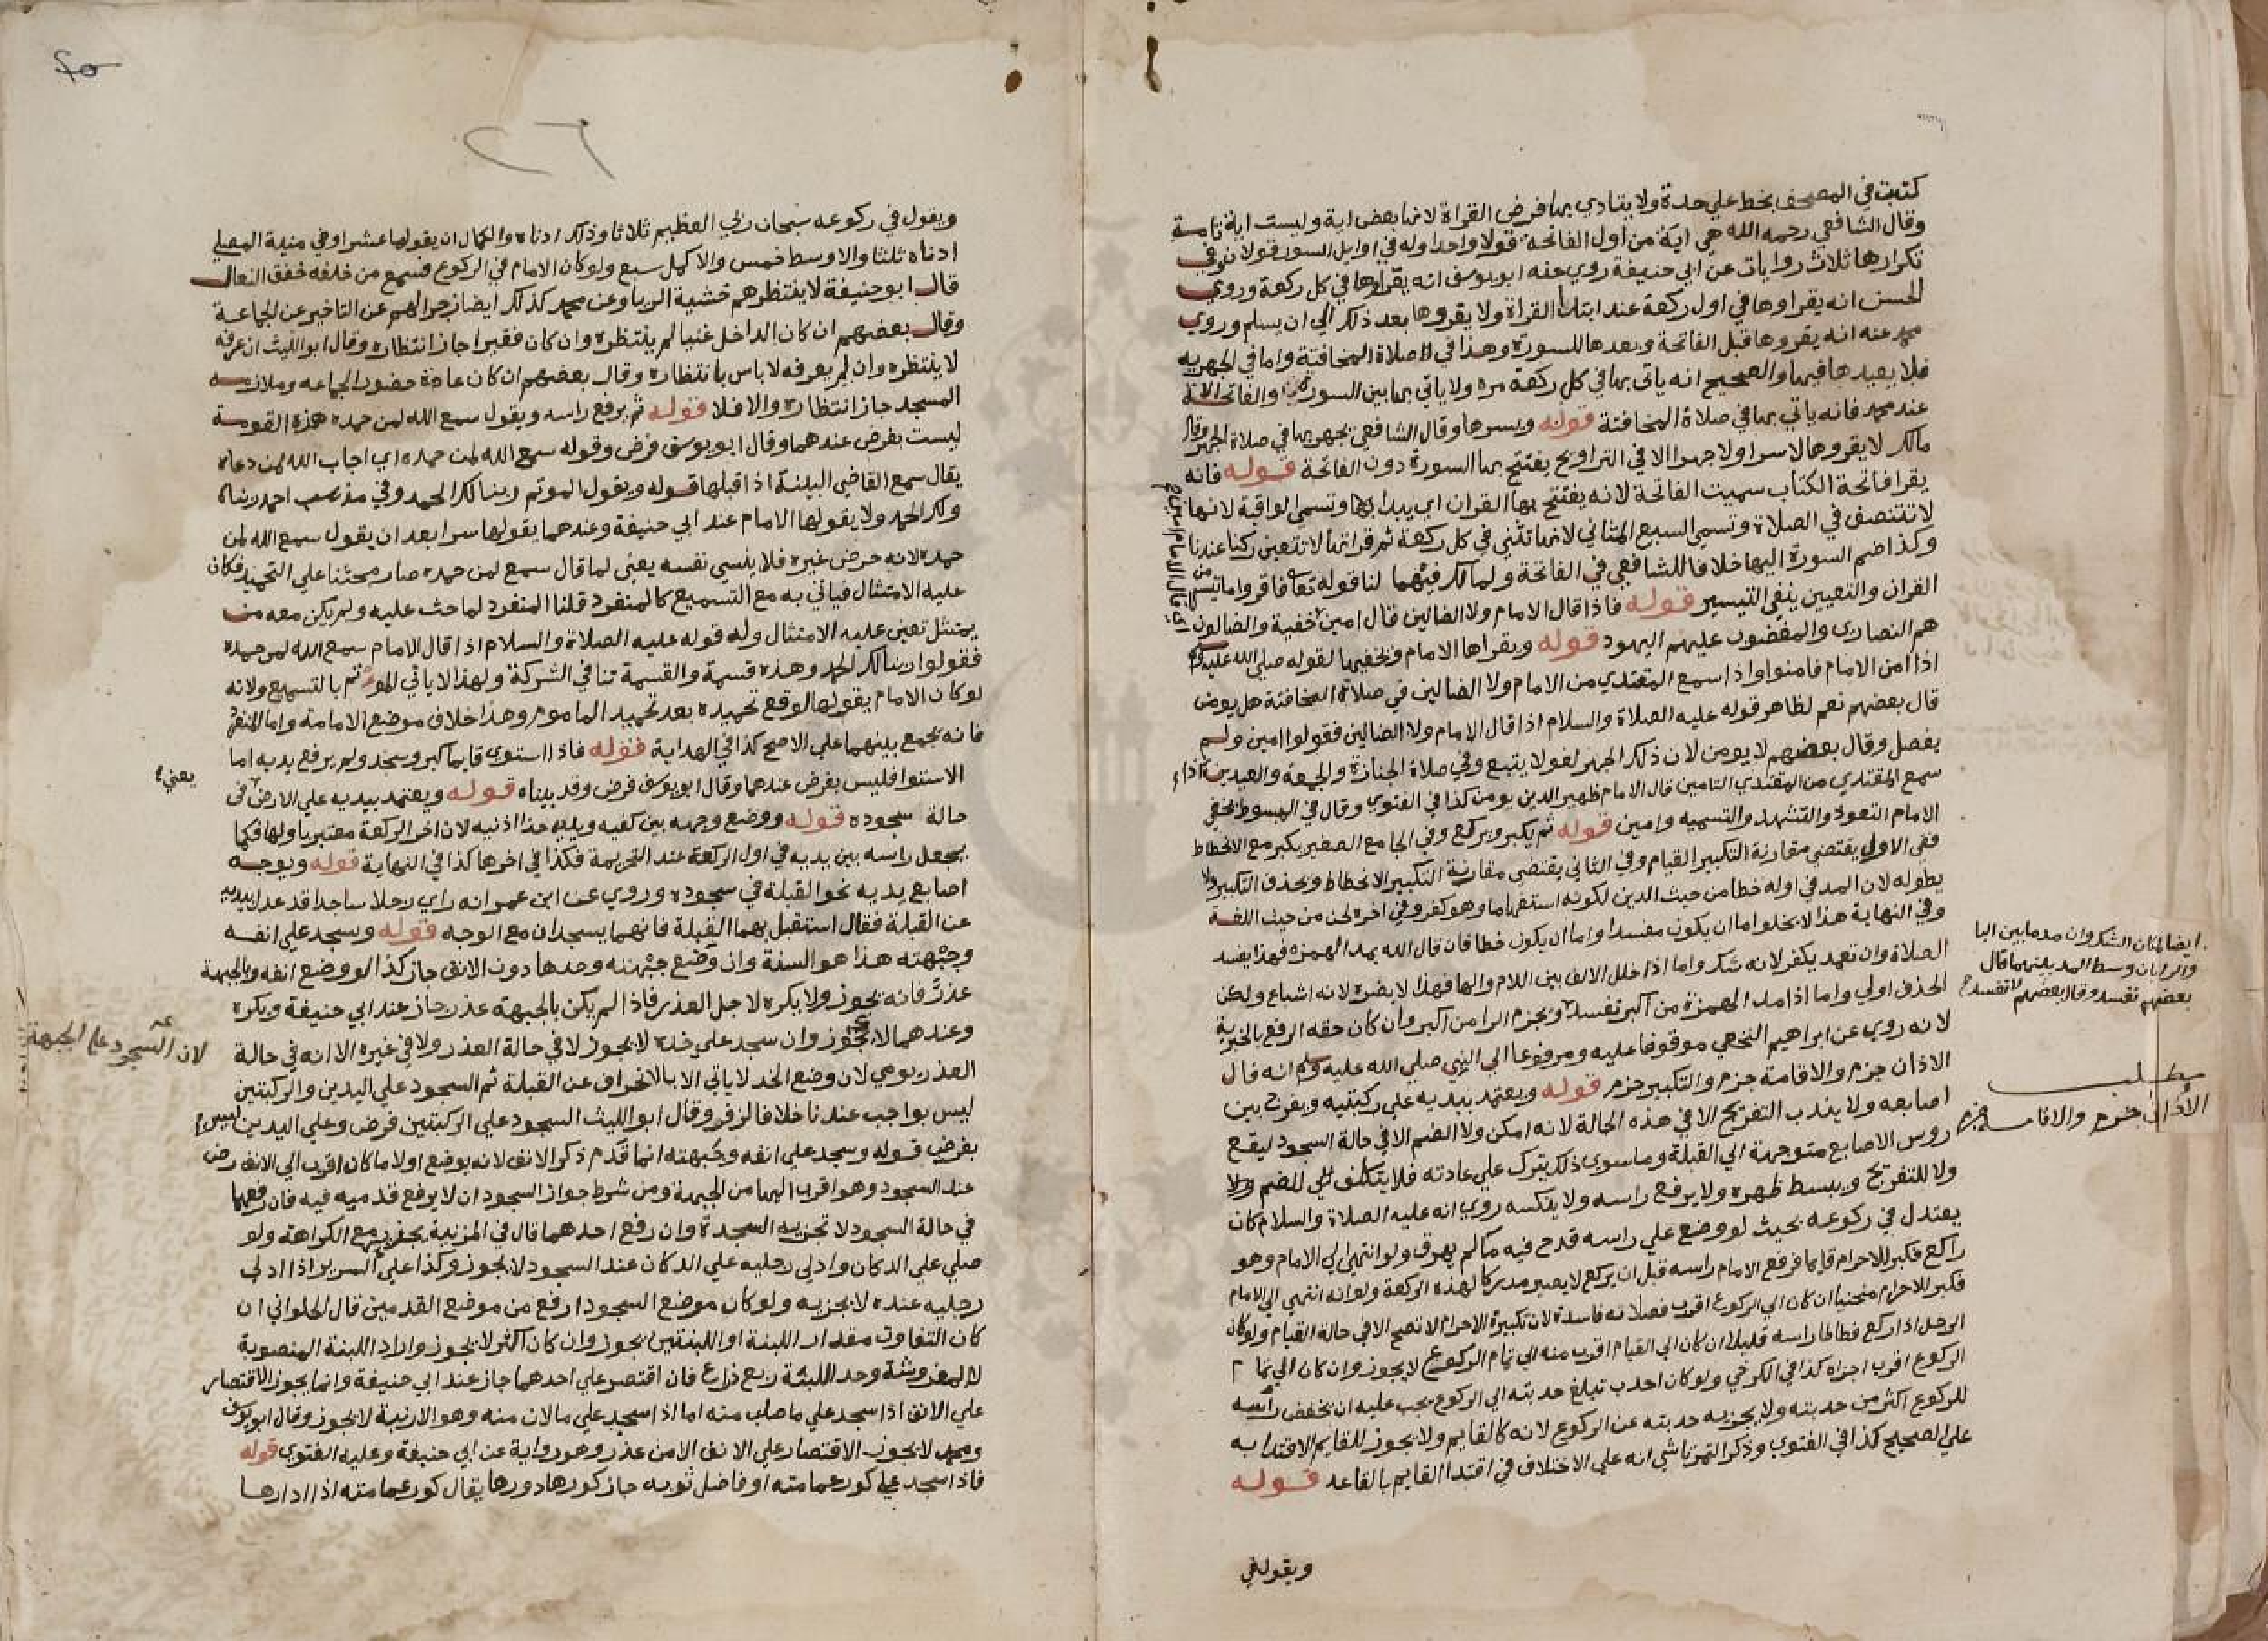 كتبت في المصحف بخط علي حدة ولا يتادي بها فرض القراة لانها بعض اية وليست اية تامة
وقال الشافعي رحمه الله هي اية من اول الفاتحة قولا واحدا وله في اوايل السور قولان وفي
تكرارها ثلاث روايات عن ابي حنيفة روي عنه ابو يوسف انه يقراوها في كل ركعة وروي
الحسن انه يقراوها في اول ركعة عند ابتدا القراة ولا يقروها بعد ذلك الي ان يسلم وروي
محمد عنه انه يقروها قبل الفاتحة وبعدها للسورة وهذا في الصلاة المخافتة واما في الجهرية
فلا يعيدها فيها والصحيح انه ياتي بها في كل ركعة مرة ولا ياتي بها بين السورة والفاتحة الا
عند محمد فانه ياتي بها في صلاة المخافتة قوله ويسرها وقال الشافعي يجهر بها في صلاة الجهر وقال
مالك لا يقروها لا سرا ولا جهرا الا في التراويح يفتتح بها السورة دون الفاتحة قوله فانه
يقرا فاتحة الكتاب سميت الفاتحة لانه يفتتح بها القران اي يبدا بها وتسمي الواقية لانها
لا تتنصف في الصلاة وتسمي السبع المثاني لانها تثني في كل ركعة ثم قراتها لا تتعين ركنا عندنا
وكذا ضم السورة اليها خلافا للشافعي في الفاتحة ولمالك فيهما لنا قوله تعا فاقروا ما تيسر من
القران والتعيين ينفي التيسير قوله فاذا قال الامام ولا الضالين قال امين خفية والضالون
هم النصاري والمغضوب عليهم اليهود قوله ويقراها الامام ويخفيها لقوله صلي الله عليه وسلم
اذا امن الامام فامنوا واذا سمع المقتدي من الامام ولا الضالين في صلاة المخافتة هل يومن
قال بعضهم نعم لظاهر قوله عليه الصلاة والسلام اذا قال الامام ولا الضالين فقولوا امين ولم
يفصل وقال بعضهم لا يومن لان ذلك الجهر لغو لا يتبع وفي صلاة الجنازة والجمعة والعيدين اذا
سمع المقتدي من المقتدي التامين قال الامام ظهير الدين يومن كذا في الفتوي وقال في المبسوط يخفي
الامام التعوذ والتشهد والتسميه وامين قوله ثم يكبر ويركع وفي الجامع الصغير يكبر مع الانحطاط
ففي الاول يقتضي مقارنة التكبير القيام وفي الثاني يقتضي مقارنة التكبير الانحطاط ويحذف التكبير ولا
يطوله لان المد في اوله خطا من حيث الدين لكونه استفهاما وهو كفر وفي اخره لحن من حيث اللغة
وفي النهاية هذا لا يخلوا اما ان يكون مفسدا واما ان يكون خطا فان قال الله بمد الهمزه فهذا يفسد
الصلاة وان تعمد يكفر لانه شك واما اذا خلل الالف بين اللام والها فهذا لا يضره لانه اشباع ولكن
الحذف اولي واما اذا مد الهمزة من اكبر تفسد ويجزم الرا من اكبر وان كان حقه الرفع بالخبرية
لانه روي عن ابراهيم النخعي موقوفا عليه ومرفوعا الي النبي صلي الله عليه وسلم انه قال
الاذان جزم والاقامة جزم والتكبير جزم قوله ويعتمد بيديه علي ركبتيه ويفرج بين
اصابعه ولا يندب التفريج الا في هذه الحالة لانه امكن ولا الضم الا في حالة السجود ليقع
روس الاصابع متوجهة الي القبلة وما سوي ذلك يترك علي عادته فلا يتكلف للضم ولا
ولا للتفريج ويبسط ظهره ولا يرفع راسه ولا ينكسه روي انه عليه الصلاة والسلام كان
يعتدل في ركوعه بحيث لو وضع علي راسه قدح فيه ما لم يهرق ولو انتهي الي الامام وهو
راكع فكبر للاحرام قايما فرفع الامام راسه قبل ان يركع لا يصير مدركا لهذه الركعة ولو انه انتهي الي الامام
فكبر للاحرام منحنيا ان كان الي الركوع اقرب فصلاته فاسدة لان تكبيرة الاحرام لا تصح الا في حالة القيام ولو كان
الرجل اذا ركع فطاطا راسه قليلا ان كان الي القيام اقرب منه الي تمام الركوع لا يجوز وان كان الي تمام
الركوع اقرب اجزاه كذا في الكرخي ولو كان احدب تبلغ حدبته الي الركوع يجب عليه ان يخفض راسه
للركوع اكثر من حدبته ولا يجزيه حدبته عن الركوع لانه كالقايم ولا يجوز للقايم الاقتدا به
علي الصحيح كذا في الفتوي وذكر التمرتاشي انه علي الاختلاف في اقتدا القايم بالقاعد قوله
ويقول في
ايضا لمنان الشك وان مد ما بين البا
والرابان وسط المد بينهما قال
بعضهم تفسد وقال بعضهم لا تفسد
مطلب
الاذان جزم والاقامة جزم
٢٦
ويقول في ركوعه سبحان ربي العظيم ثلاثا وذلك ادناه والكمال ان يقولها عشرا وفي منية المصلي
ادناه ثلثا والاوسط خمس والاكمل سبع ولو كان الامام في الركوع فسمع من خلفه خفق النعال
قال ابو حنيفة لا ينتظرهم خشية الريا وعن محمد كذلك ايضا زجرا لهم عن التاخير عن الجماعة
وقال بعضهم ان كان الداخل غنيا لم ينتظره وان كان فقيرا جاز انتظاره وقال ابو الليث ان عرفه
لا ينتظره وان لم يعرفه لا باس بانتظاره وقال بعضهم ان كان عادة حضور الجماعه وملازمة
المسجد جاز انتظاره والا فلا قوله ثم يرفع راسه ويقول سمع الله لمن حمده هذه القومة
ليست بفرض عندهما وقال ابو يوسف فرض وقوله سمع الله لمن حمده اي اجاب الله لمن دعاه
يقال سمع القاضي البينة اذا قبلها قوله ويقول الموتم ربنا لك الحمد وفي مذهب احمد ربنا
ولك الحمد ولا يقولها الامام عند ابي حنيفة وعندهما يقولها سرا بعد ان يقول سمع الله لمن
حمده لانه حرض غيره فلا ينسي نفسه يعني لما قال سمع لمن حمده صار محثنا علي التحميد فكان
عليه الامتثال فياتي به مع التسميع كالمنفرد قلنا المنفرد لما حث عليه ولم يكن معه من
يمتثل تعين عليه الامتثال وله قوله عليه الصلاة والسلام اذا قال الامام سمع الله لمن حمده
فقولوا ربنا لك الحمد وهذه قسمة والقسمة تنافي الشركة ولهذا لا ياتي الموتم بالتسميع ولانه
لو كان الامام يقولها لوقع تحميده بعد تحميد الماموم وهذا خلاف موضع الامامة واما المنفرد
فانه يجمع بينهما علي الاصح كذا في الهداية قوله فاذا استوي قايما كبر وسجد ولم يرفع يديه اما
الاستوا فليس بفرض عندهما وقال ابو يوسف فرض وقد بيناه قوله ويعتمد بيديه علي الارض في
يعني
حالة سجوده قوله ووضع وجهه بين كفيه ويديه حذا اذنيه لان اخر الركعة معتبر باولها فكما
يجعل راسه بين يديه في اول الركعة عند التحريمة فكذا في اخرها كذا في النهاية قوله ويوجه
اصابع يديه نحو القبلة في سجوده وروي عن ابن عمر انه راي رجلا ساجدا قد عدل بيديه
عن القبلة فقال استقبل بهما القبلة فانهما يسجدان مع الوجه قوله وسجد علي انفه
وجبهته هذا هو السنة وان وضع جبهته وحدها دون الانف جاز كذا لو وضع انفه وبالجبهة
عذر فانه يجوز ولا يكره لاجل العذر فاذا لم يكن بالجبهة عذر جاز عند ابي حنيفة ويكره
وعندهما لا يجوز وان سجد علي خده لا يجوز لا في حالة العذر ولا في غيره الا انه في حالة
لان السجود علي الجبهة
العذر يومي لان وضع الخد لا ياتي الا بالانحراف عن القبلة ثم السجود علي اليدين والركبتين
ليس بواجب عندنا خلافا لزفر وقال ابو الليث السجود علي الركبتين فرض وعلي اليدين ليس
بفرض قوله وسجد علي انفه وجبهته انما قدم ذكر الانف لانه يوضع اولا ما كان اقرب الي الارض
عند السجود وهو اقرب اليها من الجبهة ومن شرط جواز السجود ان لا يرفع قدميه فيه فان رفعهما
في حالة السجود لا تجزيه السجدة وان رفع احدهما قال في المزنية يجزيه مع الكراهة ولو
صلي علي الدكان وادلي رجليه علي الدكان عند السجود لا يجوز وكذا علي السرير اذا ادلي
رجليه عنده لا يجزيه ولو كان موضع السجود ارفع من موضع القدمين قال الحلواني ان
كان التفاوت مقدار اللبنة او اللبنتين يجوز وان كان اكثر لا يجوز واراد اللبنة المنصوبة
لا المفروشة وحد اللبنة ربع ذراع فان اقتصر علي احدهما جاز عند ابي حنيفة وانما يجوز الاقتصار
علي الانف اذا سجد علي ما صلب منه اما اذا سجد علي ما لان منه وهو الارنبة لا يجوز وقال ابو يوسف
ومحمد لا يجوز الاقتصار علي الانف الا من عذر وهو رواية عن ابي حنيفة وعليه الفتوي قوله
فاذا سجد علي كور عمامته او فاضل ثوبه جاز كورها دورها يقال كور عمامته اذا ادارها